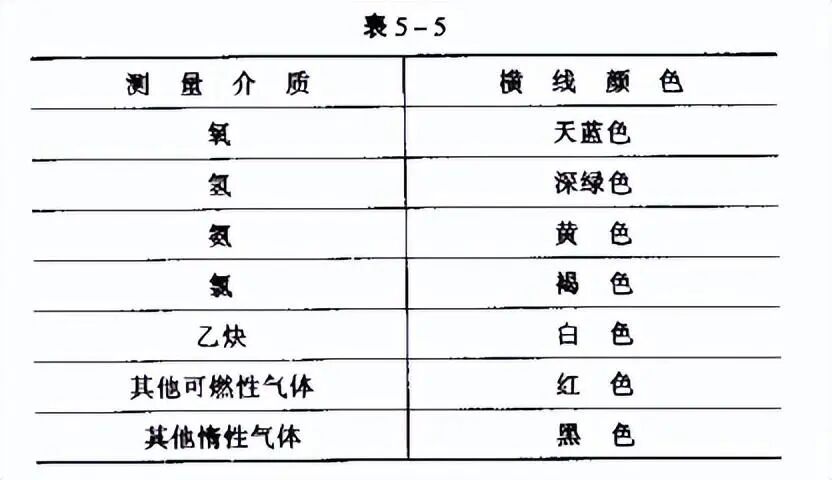 表5-5
测量介质 横线颜色
氧 天蓝色
氢 深绿色
氨 黄色
氯 褐色
乙炔 白色
其他可燃性气体 红色
其他惰性气体 黑色